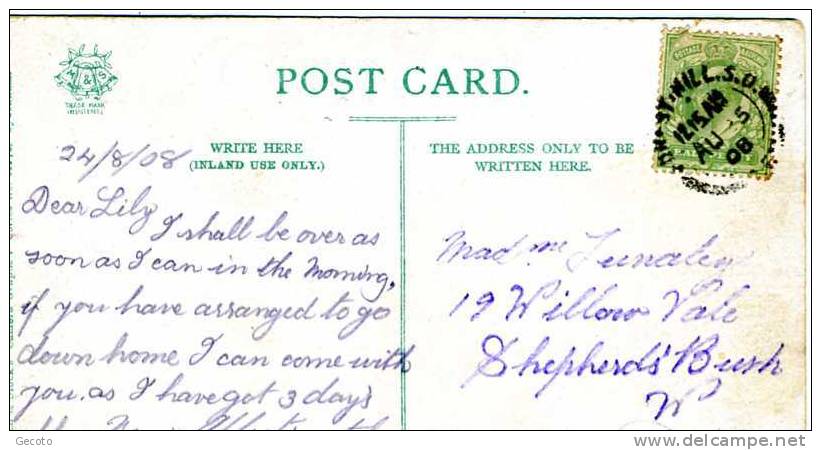 M & S
TRADE MARK
POST CARD.
WRITE HERE
(INLAND USE ONLY.)
THE ADDRESS ONLY TO BE
WRITTEN HERE.
24/8/08
Dear Lily
I shall be over as
soon as I can in the Morning,
if you have arranged to go
down home I can come with
you. as I have got 3 day's
POSTAGE
HILL.S.O.
12.15 AM
AU 25
08
Madme
19 Willow Vale
Shepherds' Bush
W
Gecoto
delcampe.net